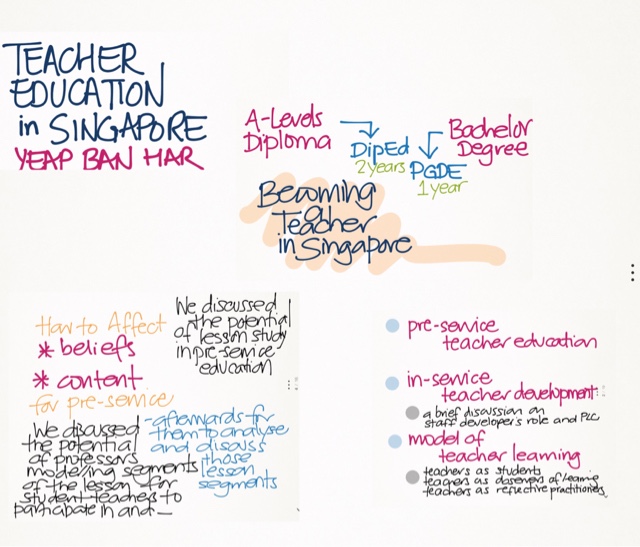 TEACHER
EDUCATION
in SINGAPORE
YEAP BAN HAR
A-Levels
Diploma
DipEd
2 years
Bachelor
Degree
PGDE
1 year
Becoming
a
Teacher
in Singapore
How to Affect
* beliefs
* content
for pre-service
We discussed
the potential
of lesson study
in pre-service
education
We discussed
the potential
of professors
modeling segments
of the lesson for
student teachers to
participate in and
- afterwards for
them to analyse
and discuss
those
lesson
segments
pre-service
teacher education
in-service
teacher development
a brief discussion on
staff developer's role and PLC
model of
teacher learning
teachers as students
teachers as observers of learning
teachers as reflective practitioners